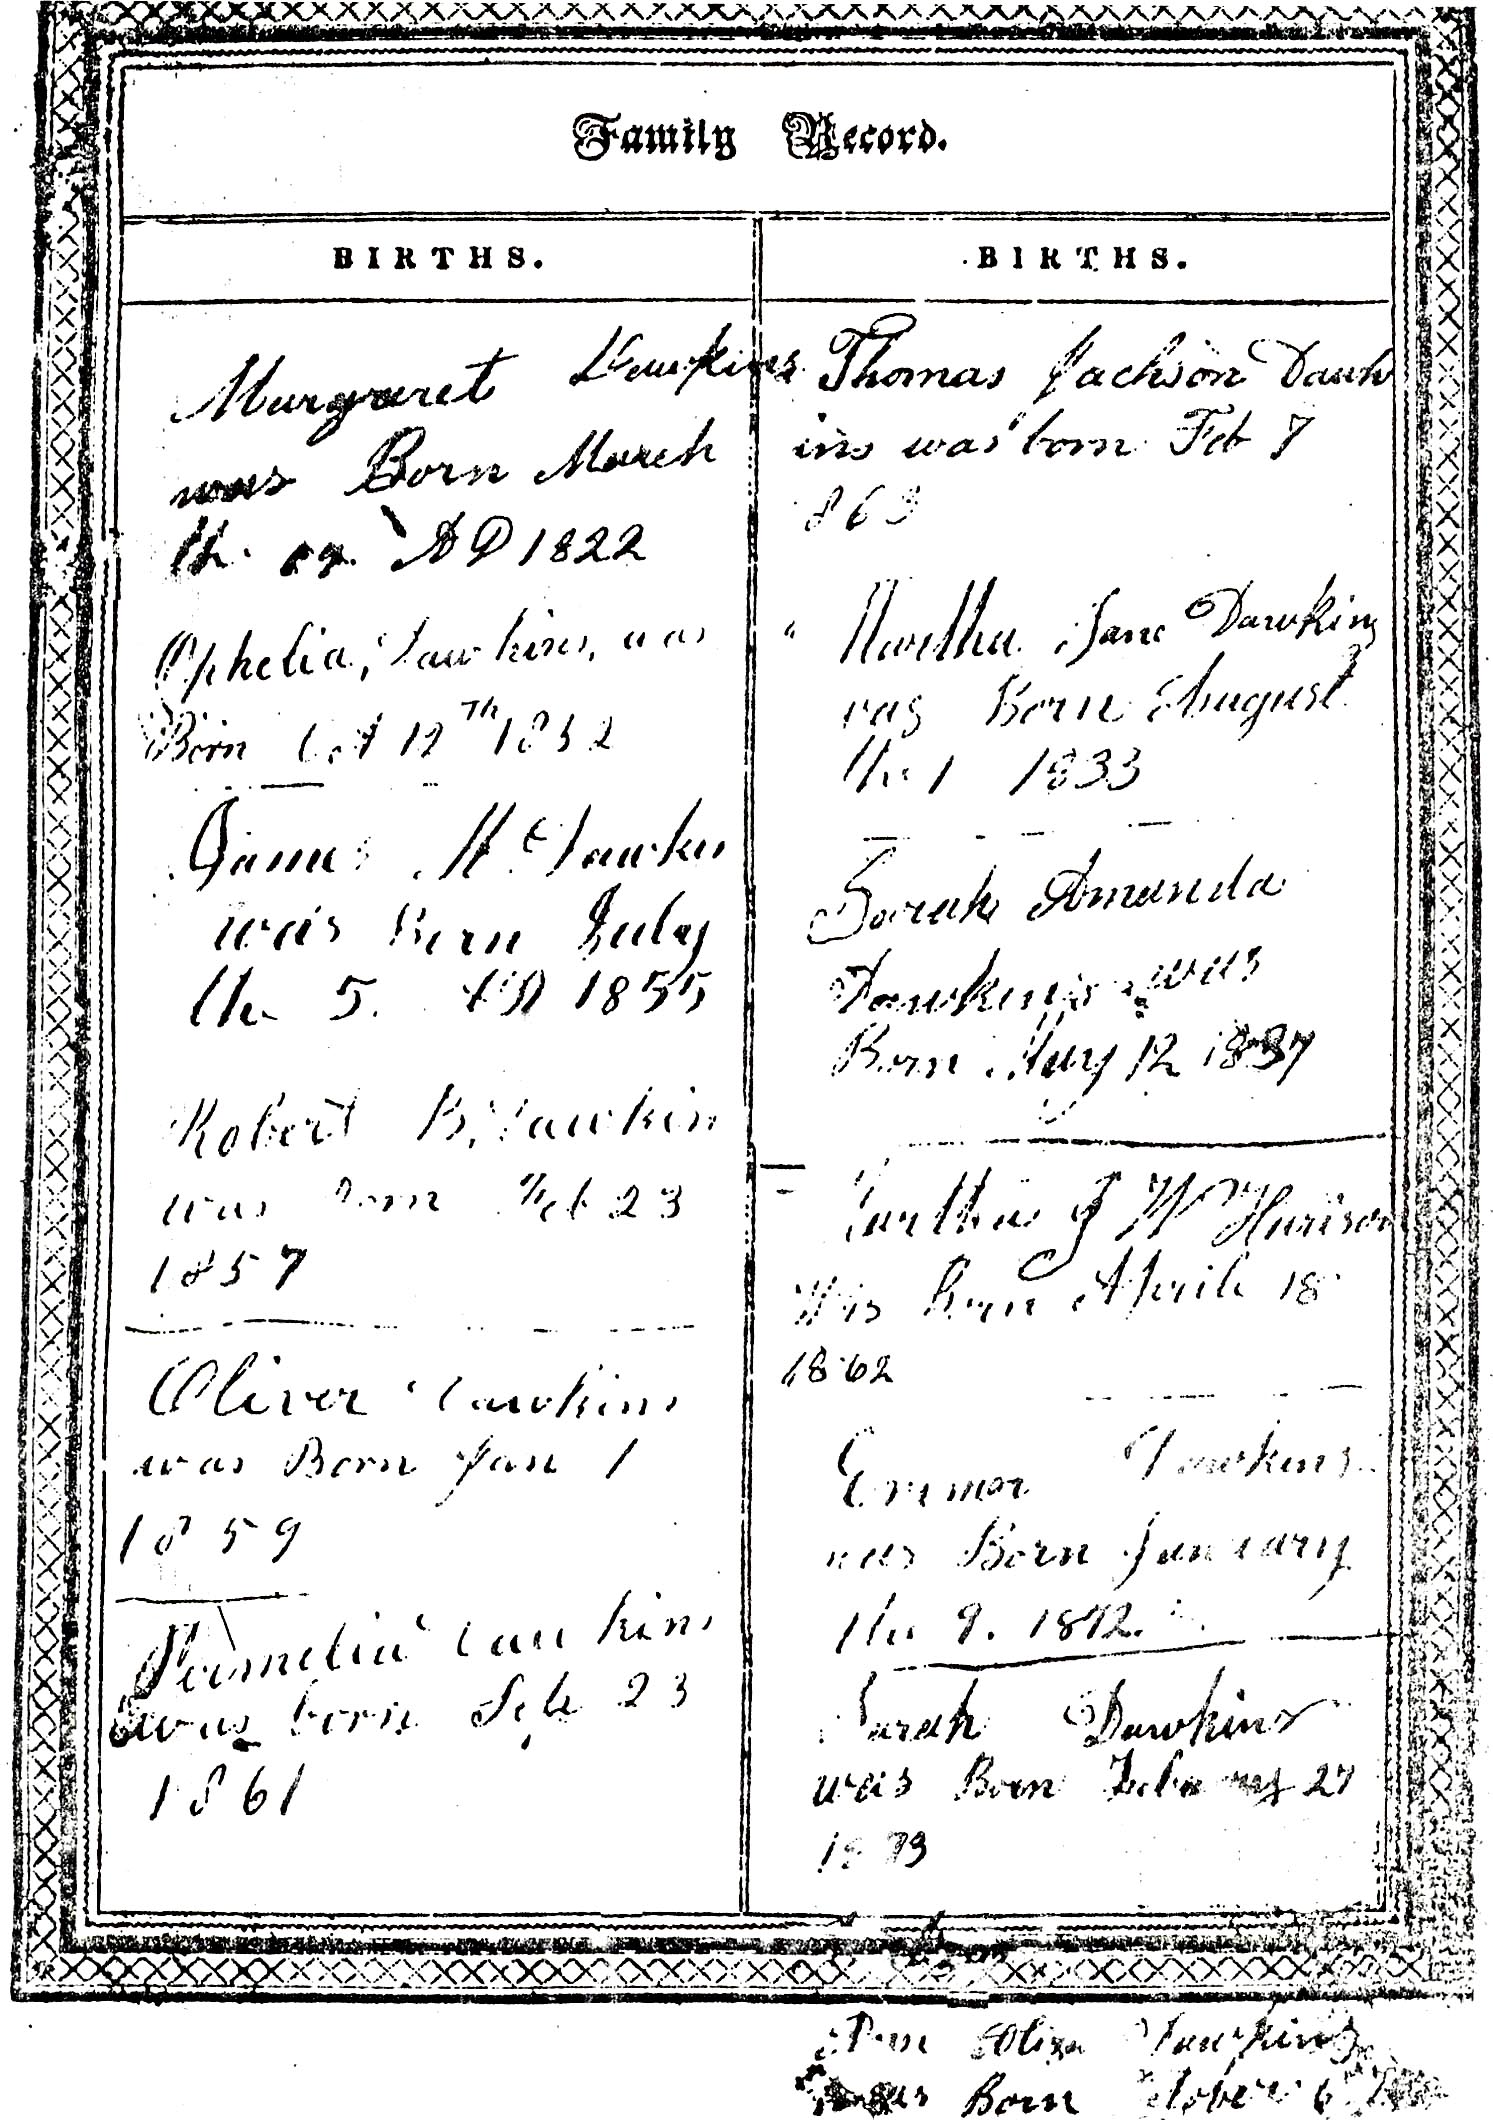 Family Record.
BIRTHS.
Margraret Dawkins
was Born March
the AD 1822
Ophelia, Dawkins, was
Born Oct 12 Th 1852
James M Dawkins
was Born July
the 5. AD 1855
Robert B, Dawkin
was born Feb 23
1857
Oliver Dawkins
was Born Jan 1
1859
Permelia Dawkins
was born Seb 23
1861
BIRTHS.
Thomas Jackson Dawk
ins was born Feb 7
863
Martha Jane Dawkins
was Born August
the 1 1833
Sarah Amanda
Dawkins was
Born May 12 1837
J W Harison
Was Born April 18
1862
Emmer Dawkins
was Born January
the 9. 1872.
Sarah Dawkins
was Born February 27
1873
Eliza Dawkins
was Born October 6